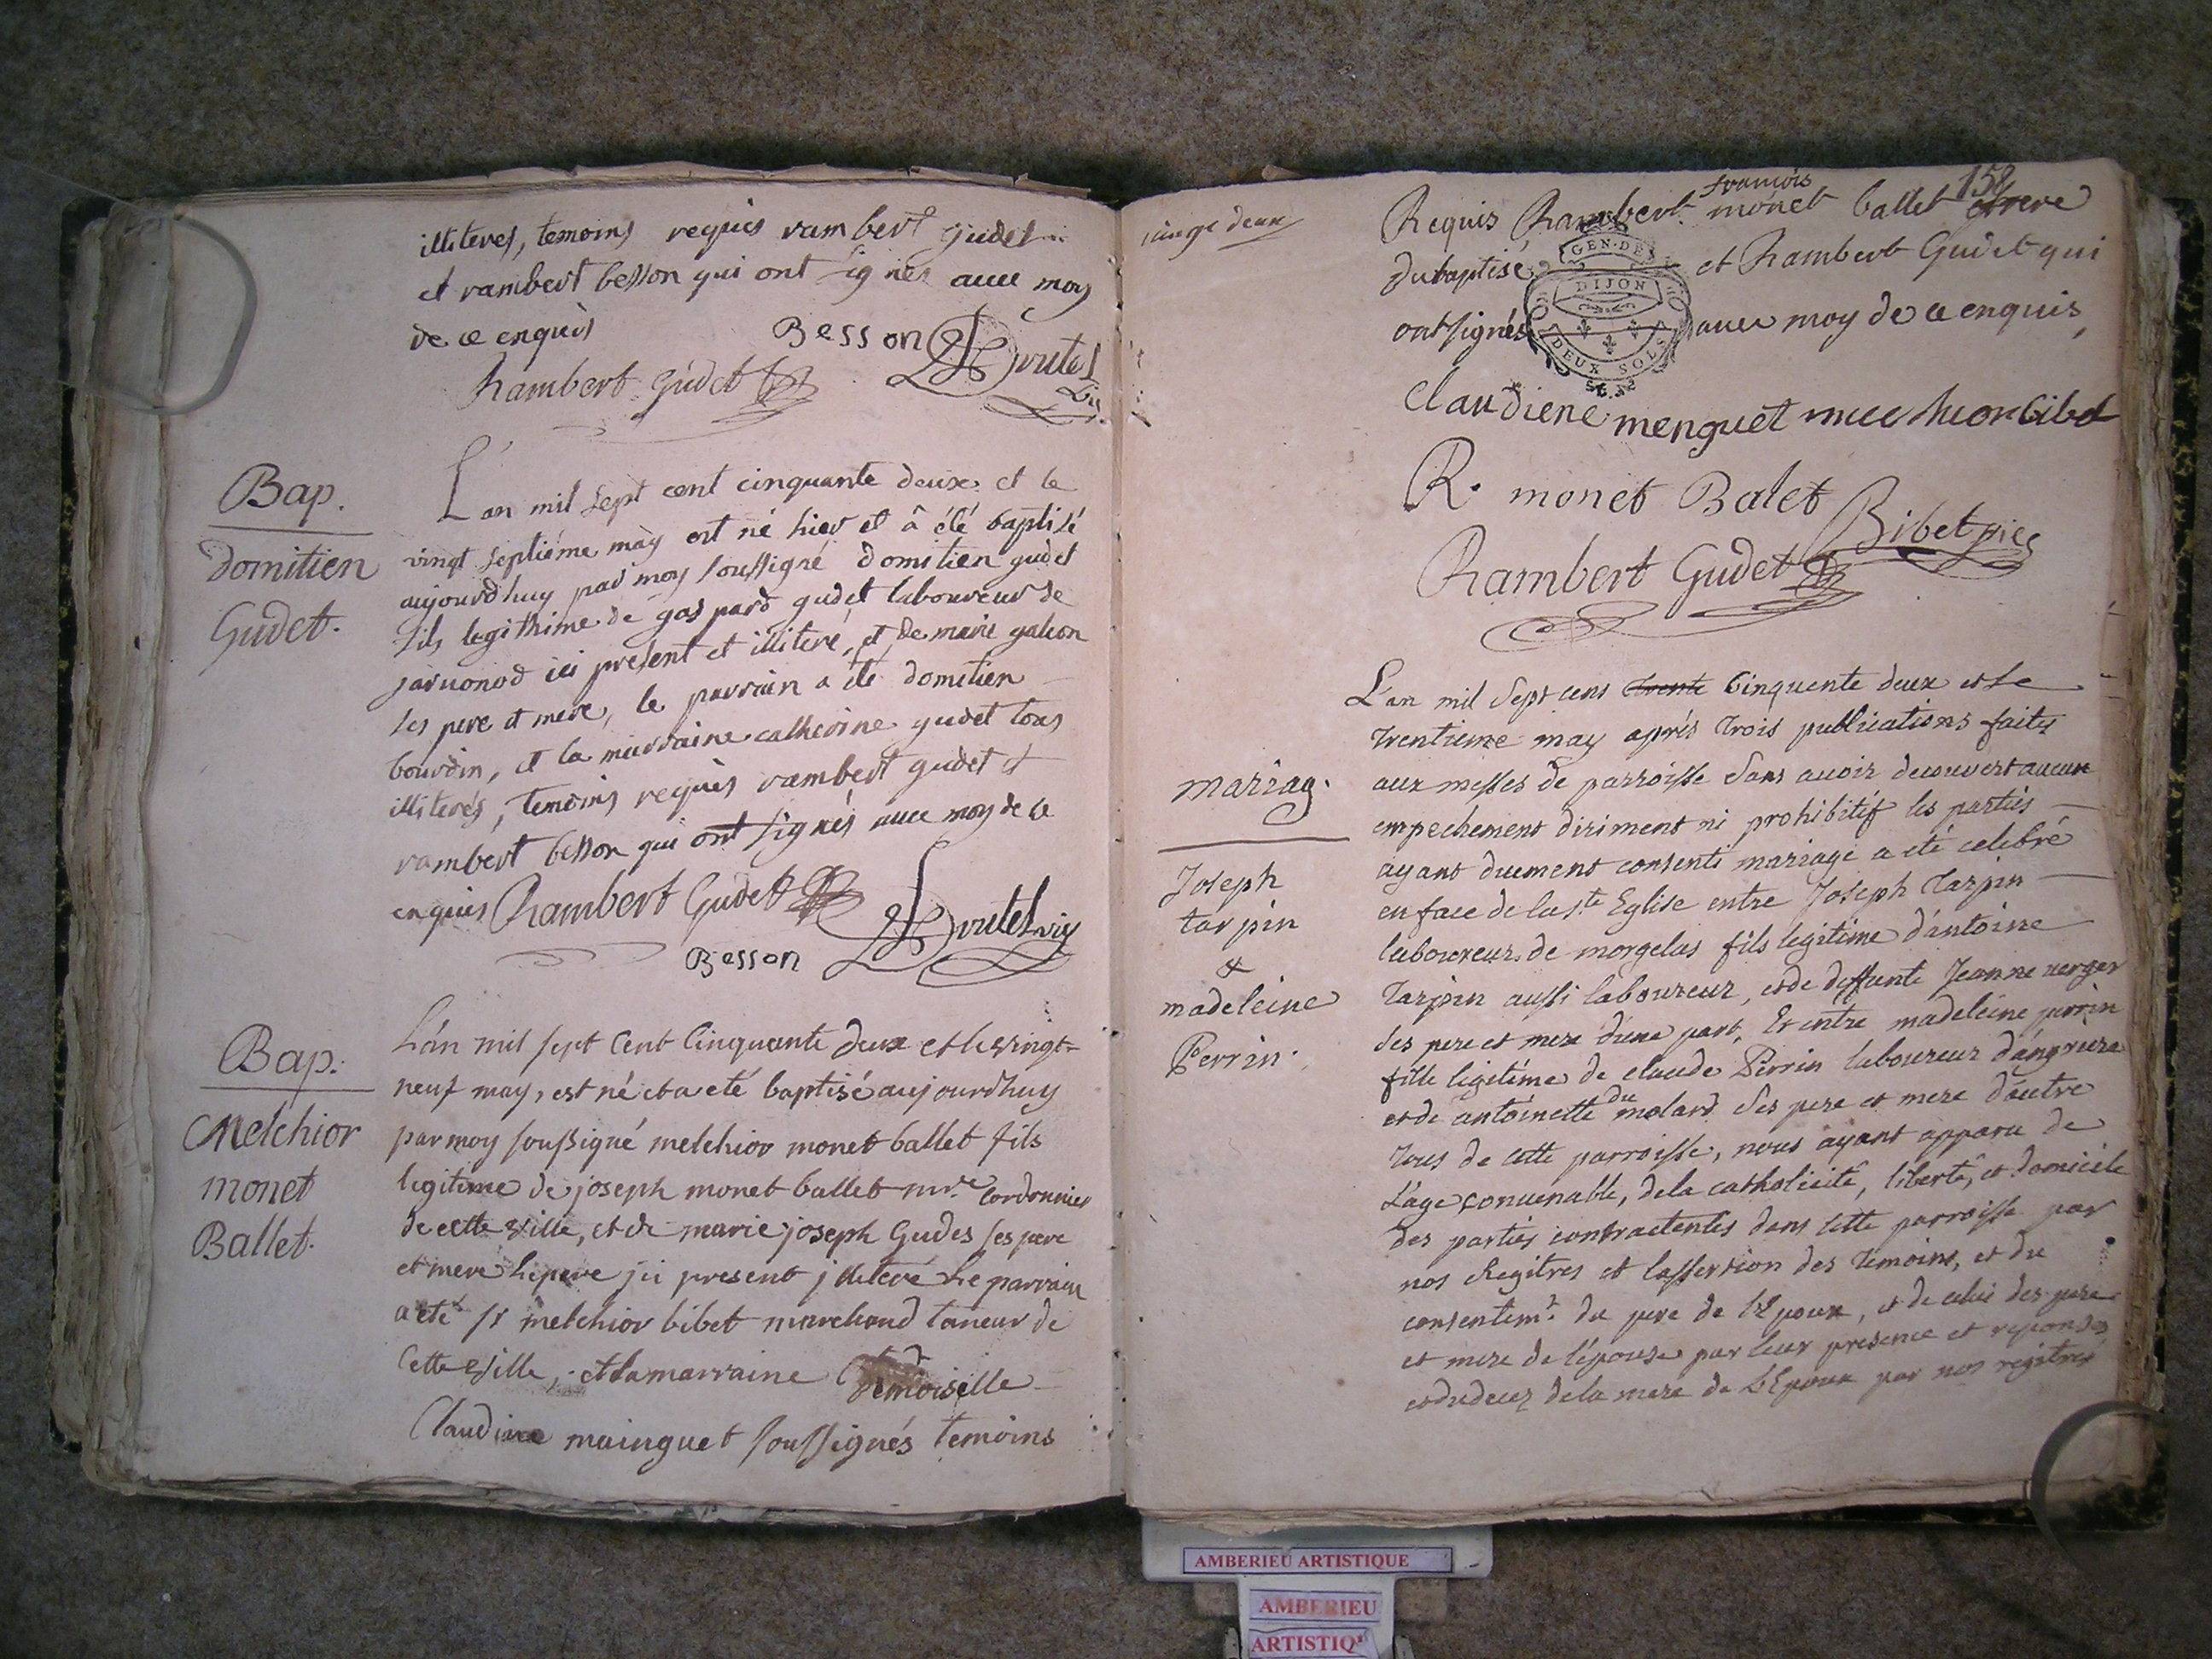 illiteres, temoins requis rambert gudet
et rambert besson qui ont signes avec moy
de ce enquis
Besson
Rambert Gudet
Bap.
domitien
Gudet.
L'an mil sept cent cinquante deux et le
vingt septiéme mäy est né hier et â été baptisé
aujourdhuy par moy soussigné domitien gudet
fils legithime de gaspard gudet laboureur de
jarvonod ici present et illiteré, et de marie galion
ses pere et mere, le parrain a été domitien
bourdin, et la marraine catherine gudet tous
illiterés, temoins requis rambert gudet et
rambert besson qui ont signés avec moy de ce
enquis Rambert Gudet
Besson
Bap.
Melchior
monet
Ballet.
L'an mil sept Cent Cinquante deux et le vingt-
neuf may, est né et a eté baptisé aujourdhuy
par moy soussigné melchior monet ballet fils
legitime de joseph monet ballet mre. Cordonnier
de cette ville, et de marie joseph Gudet ses pere
et mere Le pere ici present jlliteré Le parrain
a eté sr melchior bibet marchand taneur de
Cette Ville, et la marraine demoiselle
Claudine mainguet soussignés temoins
cinq deux
158
Requis Rambert françois monet ballet frere
du baptisé et Rambert Gudet qui
ont signés avec moy de ce enquis,
GEN. DE
DIJON
DEUX SOLS
Claudiene menguet melchior bibet
R. monet Balet
Bibet vic
Rambert Gudet
mariag.
Joseph
tarpin
&
madeleine
Perrin.
L'an mil sept cens trente Cinquente deux et le
trentieme may aprés trois publications faites
aux messes de parroisse sans avoir decouvert aucun
empechement diriment ni prohibitif les parties
ayant duement consenti mariage a eté celebré
en face de la ste Eglise entre Joseph tarpin
laboureur de morgelas fils legitime d'antoine
tarpin aussi laboureur, et de deffunte Jeanne verger
ses pere et mere d'une part, Et entre madeleine perrin
fille legitime de claude Perrin laboureur
et de antoinette du molard ses pere et mere d'autre
tous de cette parroisse, nous ayant apparu de
L'age convenable, de la catholicité, liberté, et domicile
des parties contractentes dans cette parroisse par
nos Regitres et l'assertion des temoins, et du
consentemt. du pere de l'Epoux, et de celui des pere
et mere de l'épouse par leur presence et reponses
et du decez de la mere de l'Epoux par nos regitres
AMBERIEU ARTISTIQUE
AMBERIEU
ARTISTIQ